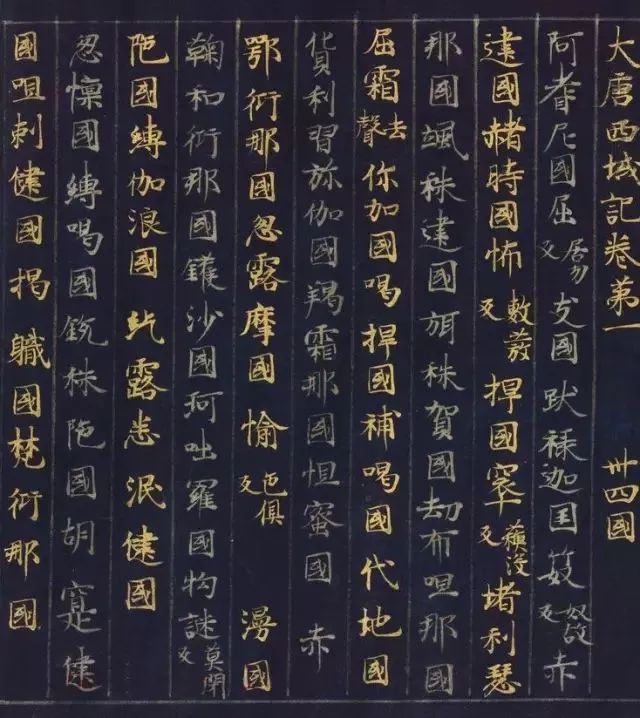 大唐西域記卷第一 卅四國
阿耆尼國屈居勿反支國跋祿迦国笯奴故反赤
建國赭時國怖敷發反捍國窣蘓没反堵利瑟
那国颯秣建國弭秣賀國劫布呾那国
屈霜去聲你加國喝捍國補喝國代地國
貨利習弥伽國羯霜那國怛蜜國 赤
鄂衍那国忽露摩國愉色俱反 漫國
鞠和衍那国鑊沙國珂咄羅國拘謎莫閇反
陁國縛伽浪國紇露悉泯健國
忽懍國縛喝國銳秣陁國胡寔健
國呾剌健國揭職國梵衍那國